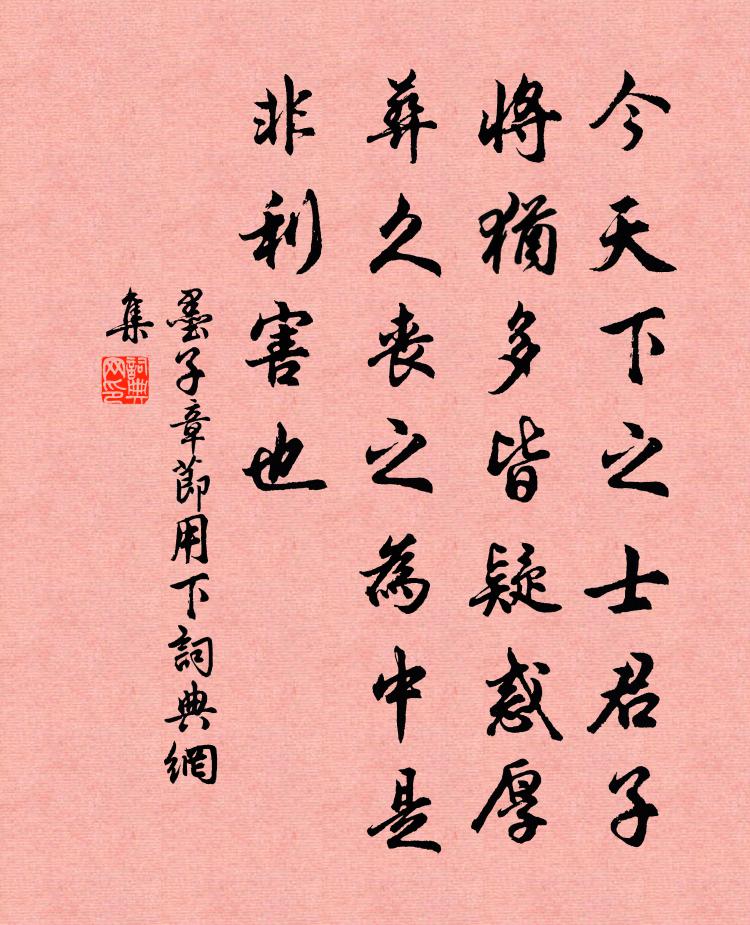 今天下之士君子
將猶多皆疑惑厚
葬久喪之為中是
非利害也
墨子章節用下詞典網
集
詞典网印